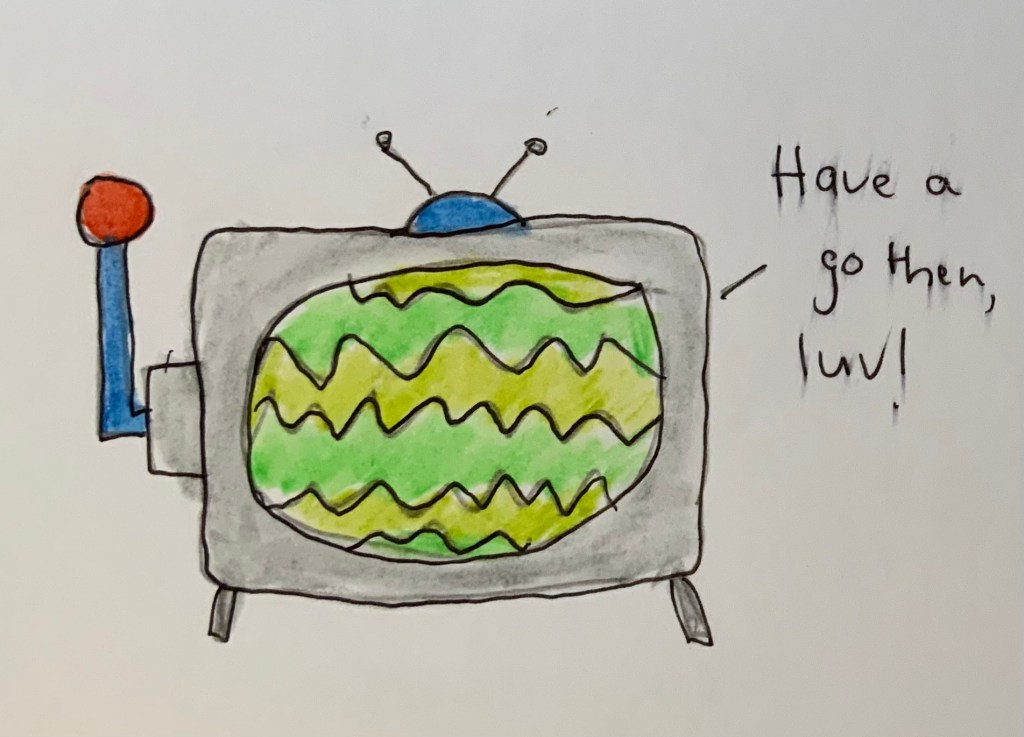 Have a
go then,
luv!